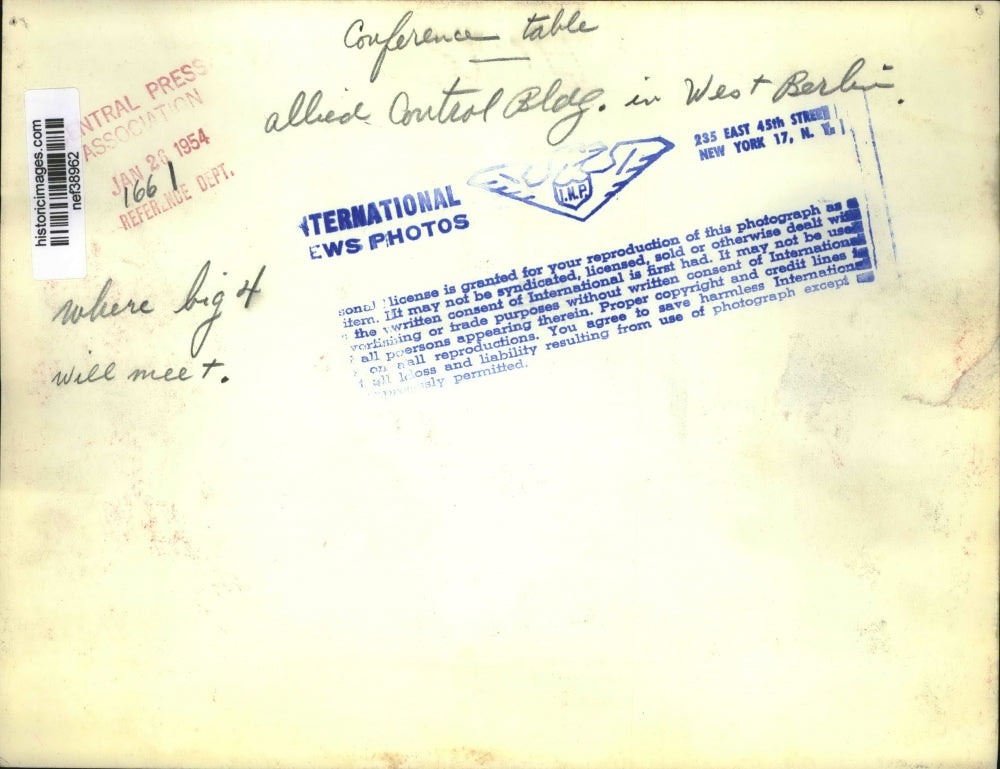 Conference table
allied Control Bldg. in West Berlin.
where big 4
will meet.
NTRAL PRESS
ASSOCIATION
JAN 26 1954
1661
REFERENCE DEPT.
historicimages.com
nef38962
NTERNATIONAL
EWS PHOTOS
I.N.P.
235 EAST 45th STREET
NEW YORK 17, N. Y.
license is granted for your reproduction of this photograph as
item. It may not be syndicated, licensed, sold or otherwise dealt with
the written consent of International is first had. It may not be used
or trade purposes without written consent of International
all persons appearing therein. Proper copyright and credit lines
on all reproductions. You agree to save harmless International
all loss and liability resulting from use of photograph except
permitted.